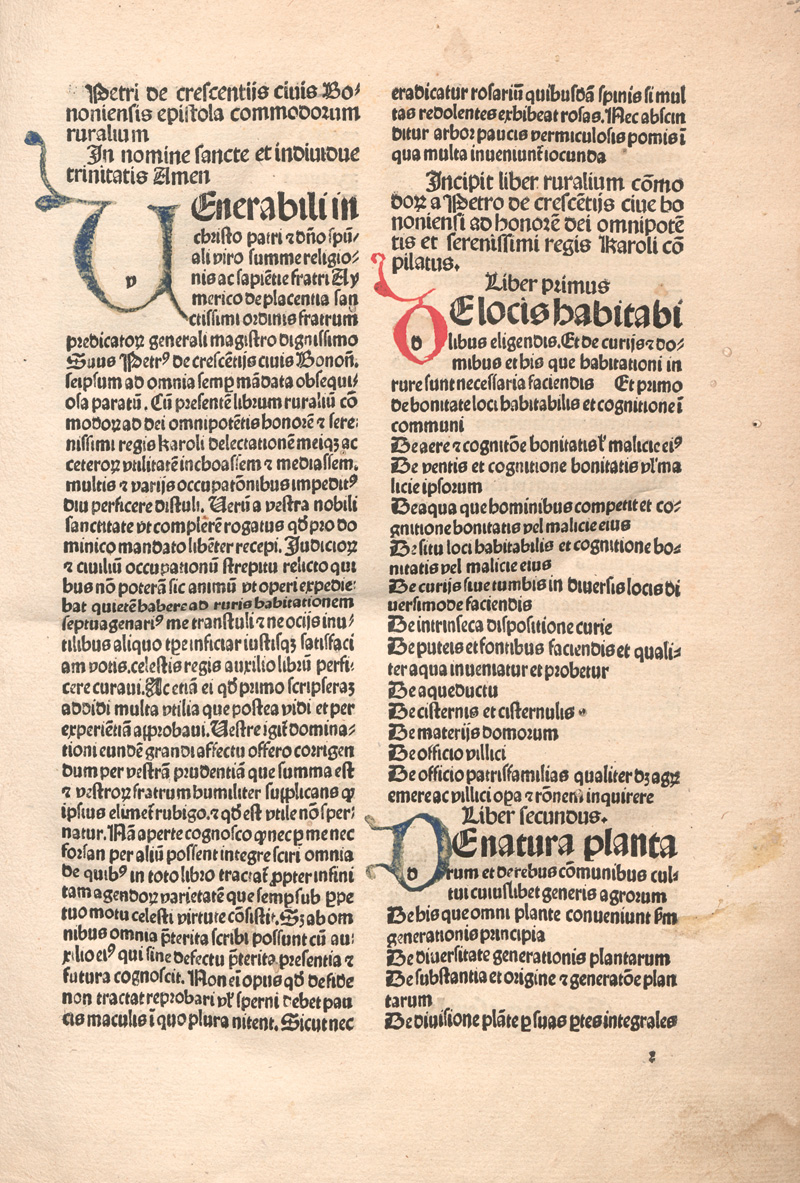 Petri de crescentijs ciuis Bo⸗
noniensis epistola commodorum
ruralium
In nomine sancte et indiuidue
trinitatis Amen
VEnerabili in
christo patri ⁊ dño spū⸗
ali viro summe religio⸗
nis ac sapiētie fratri Ay
merico de placentia san
ctissimi ordinis fratrum
predicatoꝝ generali magistro dignissimo
Suus Petrꝰ de crescētijs ciuis Bonoñ.
seipsum ad omnia semp̄ mādata obsequi⸗
osa paratū. Cū presentē librum ruraliū cō
modoꝝ ad dei omnipotētis honorē ⁊ sere⸗
nissimi regis karoli delectationē meiqꝫ ac
ceteroꝝ vtilitatē inchoassem ⁊ mediassem.
multis ⁊ varijs occupatōnibus impeditꝰ
diu perficere distuli. Uerū a vestra nobili
sanctitate vt complerē rogatus qđ pro do
minico mandato libēter recepi. Judicioꝝ
⁊ ciuiliū occupationū strepitu relicto qui
bus nō poterā sic animū vt operi expedie⸗
bat quietē habere ad ruris habitationem
septuagenariꝰ me transtuli ⁊ ne ocijs inu⸗
tilibus aliquo tꝑe inficiar iustisqꝫ satisfaci
am votis. celestis regis auxilio librū perfi⸗
cere curaui. Ac etiā ei qđ primo scripseraꝫ
addidi multa vtilia que postea vidi et per
experiētiā approbaui. Uestre igit̄ domina⸗
tioni eundē grandi affectu offero corrigen
dum per vestrā prudentiā que summa est
⁊ vestroꝝ fratrum humiliter supplicans ꝙ
ipsius elimet̄ rubigo. ⁊ qđ est vtile nō sper⸗
natur. Nā aperte cognosco ꝙ nec ꝑ me nec
forsan per aliū possent integre sciri omnia
de quibꝰ in toto libro tractat̄ ꝓpter infini
tam agendoꝝ varietatē que semꝑ sub ꝑpe
tuo motu celesti virtute cōsistit. Sꝫ ab om
nibus omnia p̄terita scribi possunt cū au⸗
xilio eiꝰ qui sine defectu p̄terita presentia ⁊
futura cognoscit. Non ei opus qđ de fide
non tractat reprobari vł sperni debet pau
cis maculis ī quo plura nitent. Sicut nec
eradicatur rosariū quibusdā spinis si mul
tas redolentes exhibeat rosas. Nec abscin
ditur arbor paucis vermiculosis pomis ī
qua multa inueniunt̄ iocunda
Incipit liber ruralium cōmo
doꝝ a Petro de crescētijs ciue bo
noniensi ad honorē dei omnipotē
tis et serenissimi regis Karoli cō
pilatus.
Liber primus
DE locis habitabi
libus eligendis. Et de curijs ⁊ do⸗
mibus et his que habitationi in
rure sunt necessaria faciendis Et primo
de bonitate loci habitabilis et cognitione ī
communi
De aere ⁊ cognitōe bonitatis ł malicie eiꝰ
De ventis et cognitione bonitatis vł ma
licie ipsorum
De aqua que hominibus competit et co⸗
gnitione bonitatis vel malicie eius
De situ loci habitabilis et cognitione bo⸗
nitatis vel malicie eius
De curijs siue tumbis in diuersis locis di
uersimode faciendis
De intrinseca dispositione curie
De puteis et fontibus faciendis et quali⸗
ter aqua inueniatur et probetur
De aqueductu
De cisternis et cisternulis
De materijs domorum
De officio villici
De officio patrisfamilias qualiter dꝫ agꝝ
emere ac villici opa ⁊ rōnem inquirere
Liber secundus.
DE natura planta
rum et de rebus cōmunibus cul⸗
tui cuiuslibet generis agrorum
De his que omni plante conueniunt sm̄
generationis principia
De diuersitate generationis plantarum
De substantia et origine ⁊ generatōe plan
tarum
De diuisione plāte ꝑ suas ꝑtes integrales
2